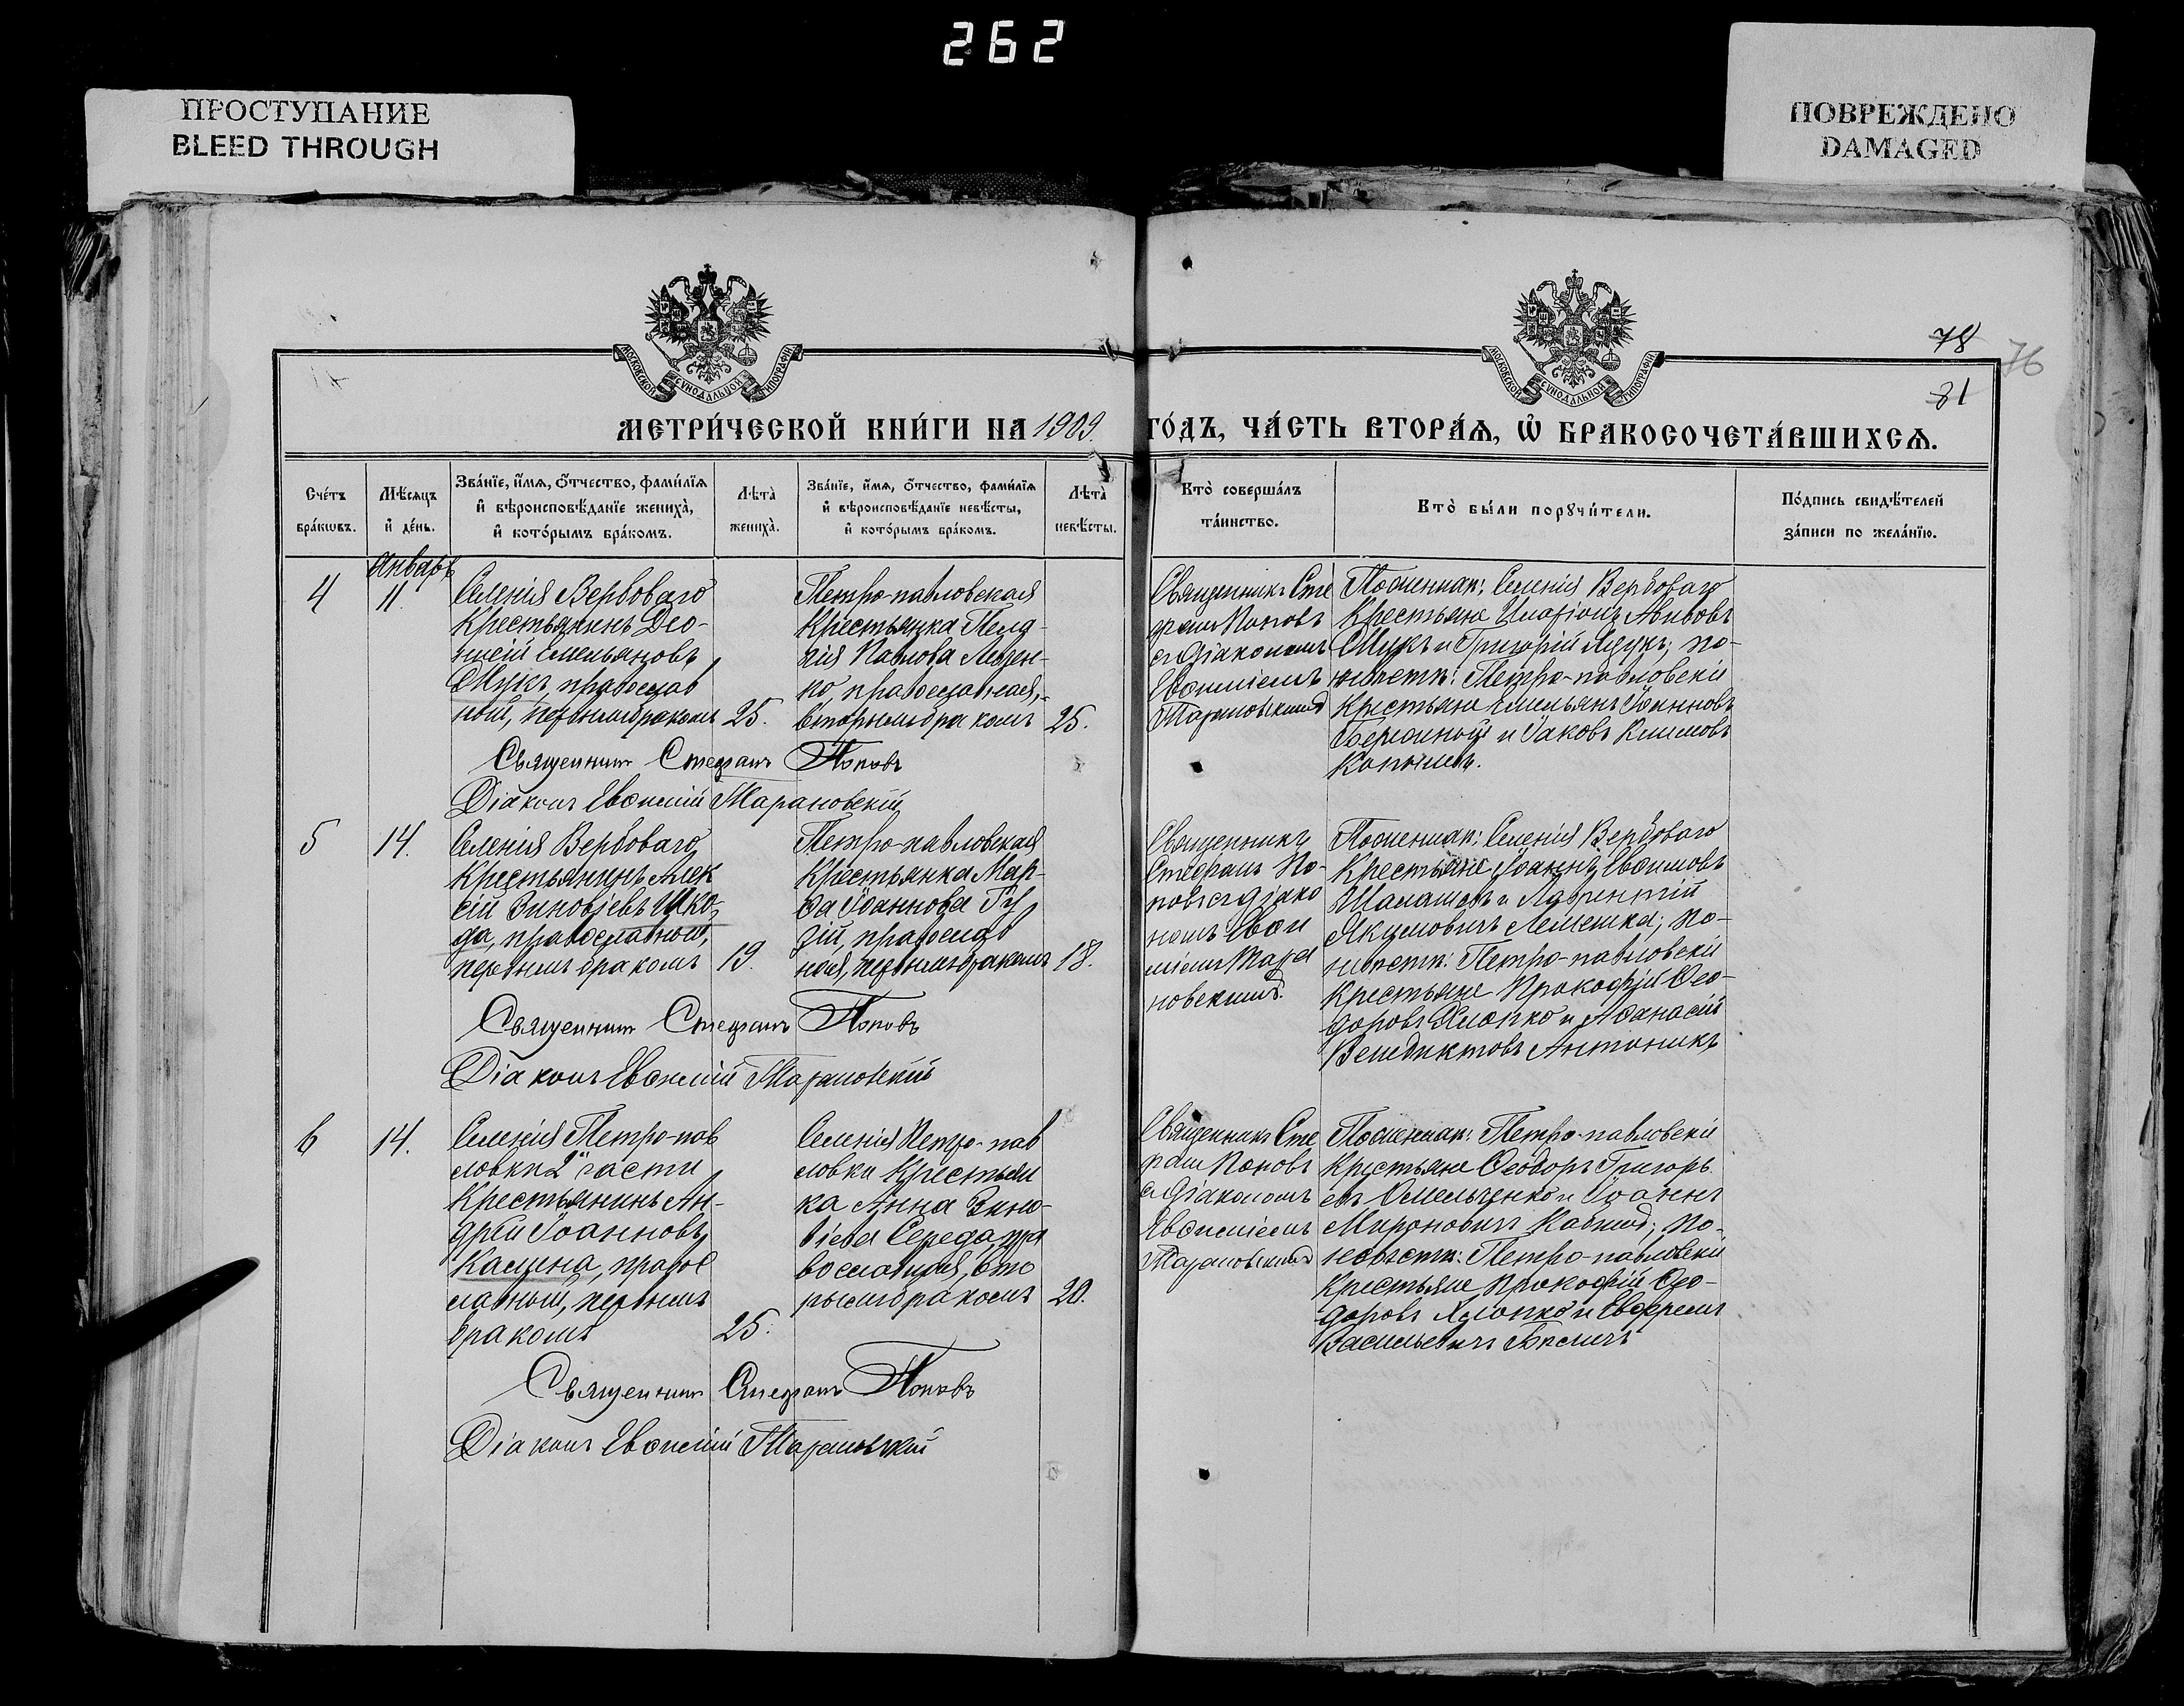 262
ПРОСТУПАНИЕ
BLEED THROUGH
ПОВРЕЖДЕНО
DAMAGED
МОСКОВСКОЙ СѴНОДАЛЬНОЙ ТИПОГРАФІИ
МОСКОВСКОЙ СѴНОДАЛЬНОЙ ТИПОГРАФІИ
78
76
81
МЕТРИ́ЧЕСКОЙ КНИ́ГИ НА 1909. ГО́ДЪ, ЧА́СТЬ ВТОРА́Ѧ, Ѡ҆ БРАКОСОЧЕТА́ВШИХСѦ.
Сче́тъ
бра́кѡвъ.
Мѣ́сяцъ
и҆ де́нь.
Зва́нїе, и҆́мя, ѻ҆́тчество, фами́лїя
и҆ вѣроисповѣ́данїе жениха̀,
и҆ кото́рымъ бра́комъ.
Лѣта̀
жениха̀.
Зва́нїе, и҆́мя, ѻ҆́тчество, фами́лїя
и҆ вѣроисповѣ́данїе невѣ́сты,
и҆ кото́рымъ бра́комъ.
Лѣта̀
невѣ́сты.
Кто̀ соверша́лъ
та́инство.
Кто̀ бы́ли порꙋчи́тели.
По́дпись свидѣ́телей
за́писи по жела́нїю.
Январь
4
11.
Селенія Вербоваго
Крестьянинъ Лео-
нтій Емельяновъ
Мукъ, православ
ный, первымъ бракомъ
25.
Петро-павловская
Крестьянка Пела-
гія Павлова
ко, православная,
вторымъ бракомъ
25.
Священникъ Сте
фанъ Поповъ
съ діакономъ
Евфиміемъ
Тарановскимъ
По женихѣ: Селенія Вербоваго
Крестьяне Иларіонъ
Мукъ и Григорій по-
невѣстѣ: Петро-павловскіи
Крестьяне Емельянъ Іоанновъ
и Іаковъ Климовъ
Священникъ Стефанъ Поповъ
Діаконъ Евфимій Тарановскій
5
14.
Селенія Вербоваго
Крестьянинъ Алек
сій Зиновіевъ Шко-
да, православный,
первымъ бракомъ
19.
Петро-павловская
Крестьянка Мар-
фа Іоаннова Гу
зій, православ
ная, первымъ бракомъ
18.
Священникъ
Стефанъ По-
повъ съ діако
номъ Евфи
міемъ Тара
новскимъ.
По женихѣ: Селенія Вербоваго
Крестьяне Іоаннъ Евфимовъ
и Лаврентій
Якимовичъ Лемешка; по-
невѣстѣ: Петро-павловскіи
Крестьяне Прокофій Ѳео-
доровъ Хлопко и Аѳанасій
Венедиктовъ Антоникъ
Священникъ Стефанъ Поповъ
Діаконъ Евфимій Тарановскій
6
14.
Селенія Петро-пав
ловки 2й части
Крестьянинъ Ан-
дрей Іоанновъ
Кацена, правос
лавный, первымъ
бракомъ
25.
Селенія Петро-пав
ловки Крестьян
ка Анна Зино-
віева Середа, пра
вославная, вто
рымъ бракомъ
20.
Священникъ Сте
фанъ Поповъ
съ діакономъ
Евфиміемъ
Тарановскимъ
По женихѣ: Петро-павловскіи
Крестьяне Ѳеодоръ Григорь
евъ Омельченко и Іоаннъ
Мироновичъ по-
невѣстѣ: Петро-павловскіи
Крестьяне Прокофій Ѳео-
доровъ Хлопко и Евфремъ
Васильевичъ
Священникъ Стефанъ Поповъ
Діаконъ Евфимій Тарановскій